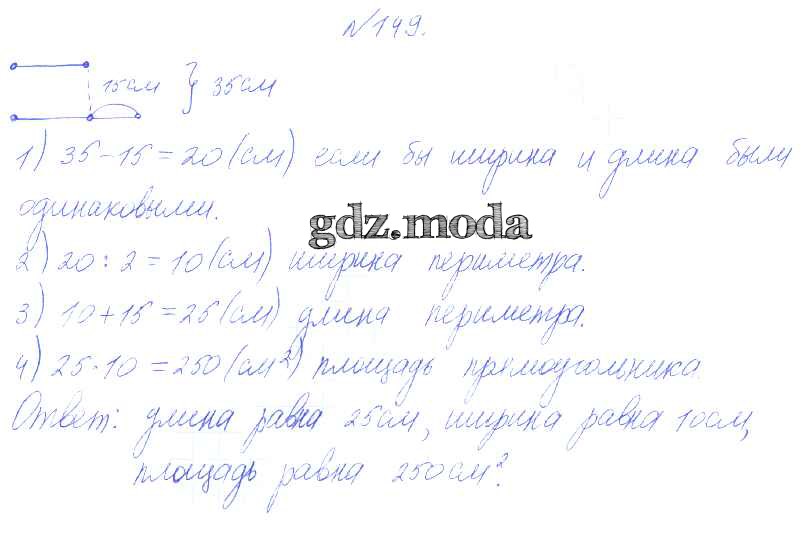 №149.
15см } 35см
1) 35-15=20(см) если бы ширина и длина были
одинаковыми.
gdz.moda
2) 20:2=10(см) ширина периметра.
3) 10+15=25(см) длина периметра.
4) 25·10=250(см²) площадь прямоугольника
Ответ: длина равна 25см, ширина равна 10см,
площадь равна 250см².